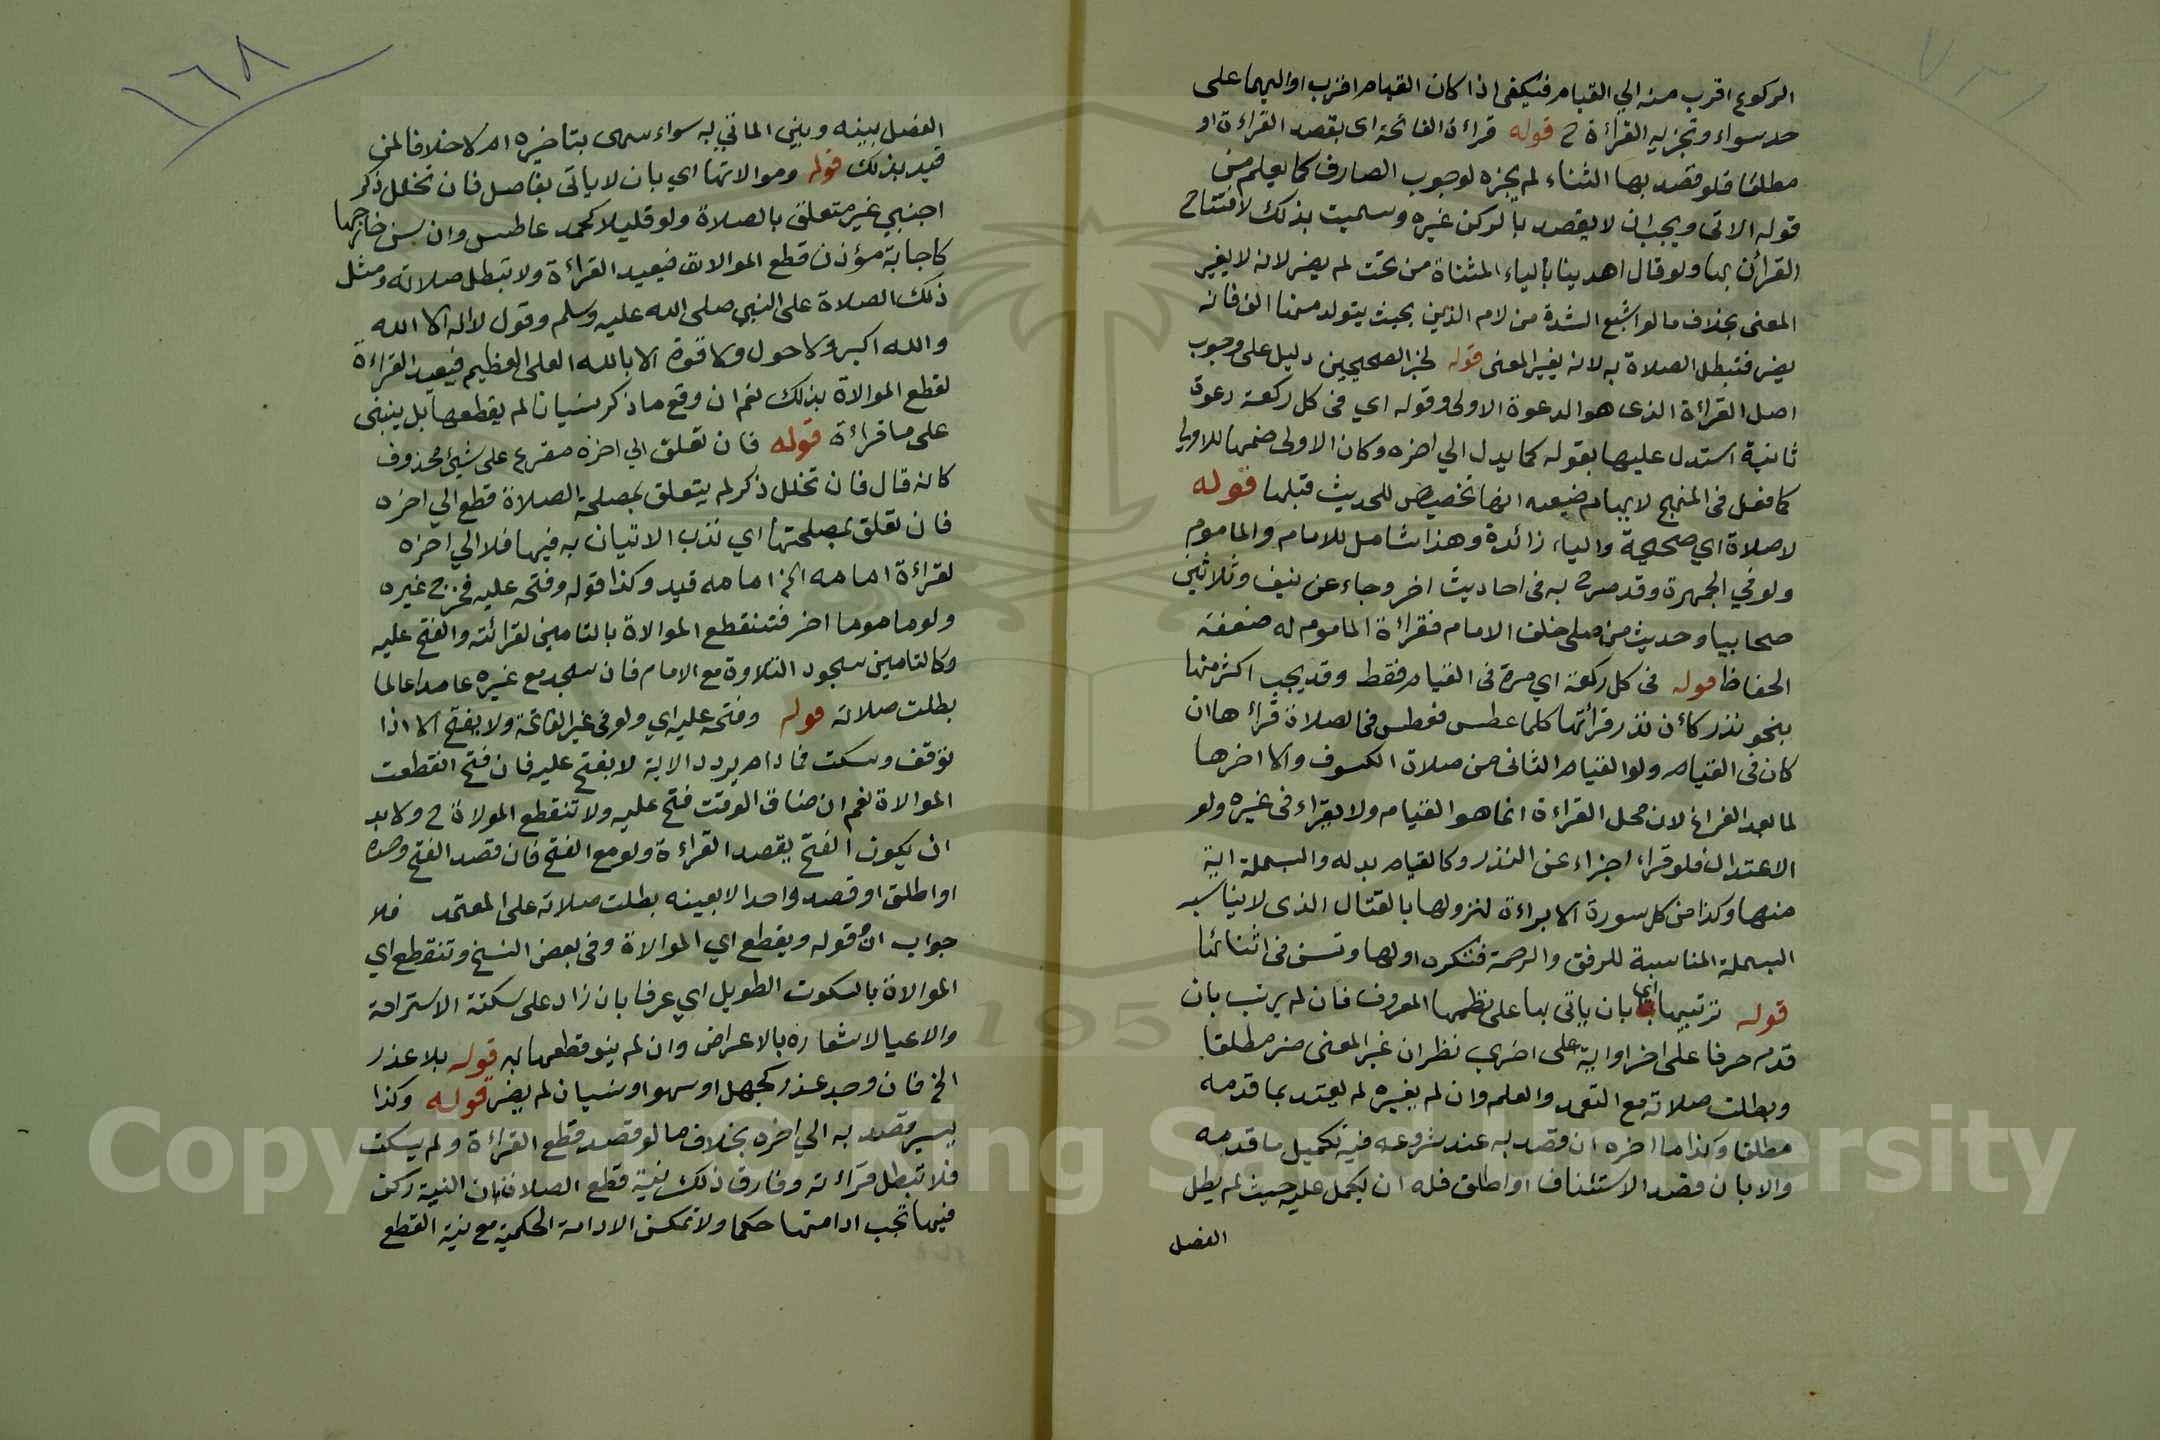 الركوع اقرب منه الي القيام فيكفى اذا كان القيام اقرب او اليهما على
حد سواء وتجزيه القراءة ح قوله قراءة الفاتحة اى بقصد القراءة او
مطلقا فلو قصد بها الثناء لم يجزه لوجوب الصارف كما يعلم من
قوله الاتى ويجب ان لا يقصد بالركن غيره وسميت بذلك لافتتاح
القرأن بها ولو قال اهدينا بالياء المثناة من تحت لم يضر لانه لا يغير
المعنى بخلاف ما لو اشبع الشدة من لام الذين بحيث يتولد منها الف فانه
يضر فتبطل الصلاة به لانه يغير المعنى قوله لخبر الصحيحين دليل على وجوب
اصل القراءة الذى هو الدعوة الاولى وقوله اي فى كل ركعة دعوة
ثانية استدل عليها بقوله كما يدل الي اخره وكان الاولى ضمها للاولي
كما فعل فى المنهج لايهام صنيعه انها تخصيص للحديث قبلها قوله
لا صلاة اي صحيحة والباء زائدة وهذا شامل للامام والماموم
ولو في الجهرة وقد صرح به فى احاديث اخر وجاء عن نيف وثلاثين
صحابيا وحديث من صلى خلف الامام فقراءة الماموم له ضعفه
الحفاظ قوله فى كل ركعة اي مرة فى القيام فقط وقد يجب اكثر منها
بنحو نذر كأن نذر قرأتها كلما عطس فعطس فى الصلاة قرأها ان
كان فى القيام ولو القيام الثانى من صلاة الكسوف والا اخرها
لما بعد الفراغ لان محل القراءة انما هو القيام ولا يقراء فى غيره ولو
الاعتدال فلو قراء اجزاء عن النذر وكالقيام بدله والبسملة اية
منها وكذا من كل سورة الا براءة لنزولها بالقتال الذى لا يناسبه
البسملة المناسبة للرفق والرحمة فتكره اولها وتسن فى اثنائها
قوله ترتيبها اى بان ياتى بها على نظمها المعروف فان لم يرتب بان
قدم حرفا على اخر او اية على اخرى نظر ان غير المعنى ضر مطلقا
وبطلت صلاته مع التعمد والعلم وان لم يغيره لم يعتد بما قدمه
مطلقا وكذا ما اخره ان قصد به عند شروعه فيه تكميل ما قدمه
والا بان قصد الاستئناف او اطلق فله ان يكمل عليه حيث لم يطل
الفصل
١٦٨
الفصل بينه وبين الماتي به سواء سهى بتاخيره ام لا خلافا لمن
قيد بذلك قوله وموالاتها اي بان لا ياتى بفاصل فان تخلل ذكر
اجنبي غير متعلق بالصلاة ولو قليلا كحمد عاطس وان سن خارجها
كاجابة مؤذن قطع الموالاة فيعيد القراءة ولا تبطل صلاته ومثل
ذلك الصلاة على النبي صلى الله عليه وسلم وقول لا اله الا الله
والله اكبر ولا حول ولا قوة الا بالله العلى العظيم فيعيد القراءة
لقطع الموالاة بذلك نعم ان وقع ما ذكر نسيانا لم يقطعها بل يبنى
على ما قراءة قوله فان تعلق الي اخره مفرع على شيئ محذوف
كانه قال فان تخلل ذكر لم يتعلق بمصلحة الصلاة قطع الي اخره
فان تعلق بمصلحتها اي ندب الاتيان به فيها فلا الي اخره
لقراءة امامه الخ امامه قيد وكذا قوله وفتحه عليه فخرج غيره
ولو ماموما اخر فتنقطع الموالاة بالتامين لقرائته والفتح عليه
وكالتامين سجود التلاوة مع الامام فان سجد مع غيره عامدا عالما
بطلت صلاته قوله وفتحه عليه اي ولو فى غير الفاتحة ولا يفتح الا اذا
توقف وسكت فما دام يردد الاية لا يفتح عليه فان فتح انقطعت
الموالاة نعم ان ضاق الوقت فتح عليه ولا تنقطع المولاة ح ولا بد
ان يكون الفتح بقصد القراءة ولو مع الفتح فان قصد الفتح وحده
او اطلق او قصد واحد الا بعينه بطلت صلاته على المعتمد فلا
جواب ان قوله ويقطع اي الموالاة وفى بعض النسخ وتنقطع اي
الموالاة بالسكوت الطويل اي عرفا بان زاد على سكتة الاستراحة
والاعيا لاشعاره بالاعراض وان لم ينو قطعها به قوله بلا عذر
الخ فان وجد عذر كجهل او سهو او نسيان لم يضر قوله وكذا
يسير قصد به الي اخره بخلاف ما لو قصد قطع القراءة ولم يسكت
فلا تبطل قراءته وفارق ذلك نية قطع الصلاة بان النية ركن
فيها تجب ادامتها حكما ولا تمكن الادامة الحكمية مع نية القطع
Copyright © King Saud University
195